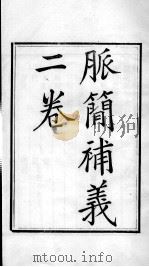 脈簡補義
二卷
mtoou.info
mtoou.info